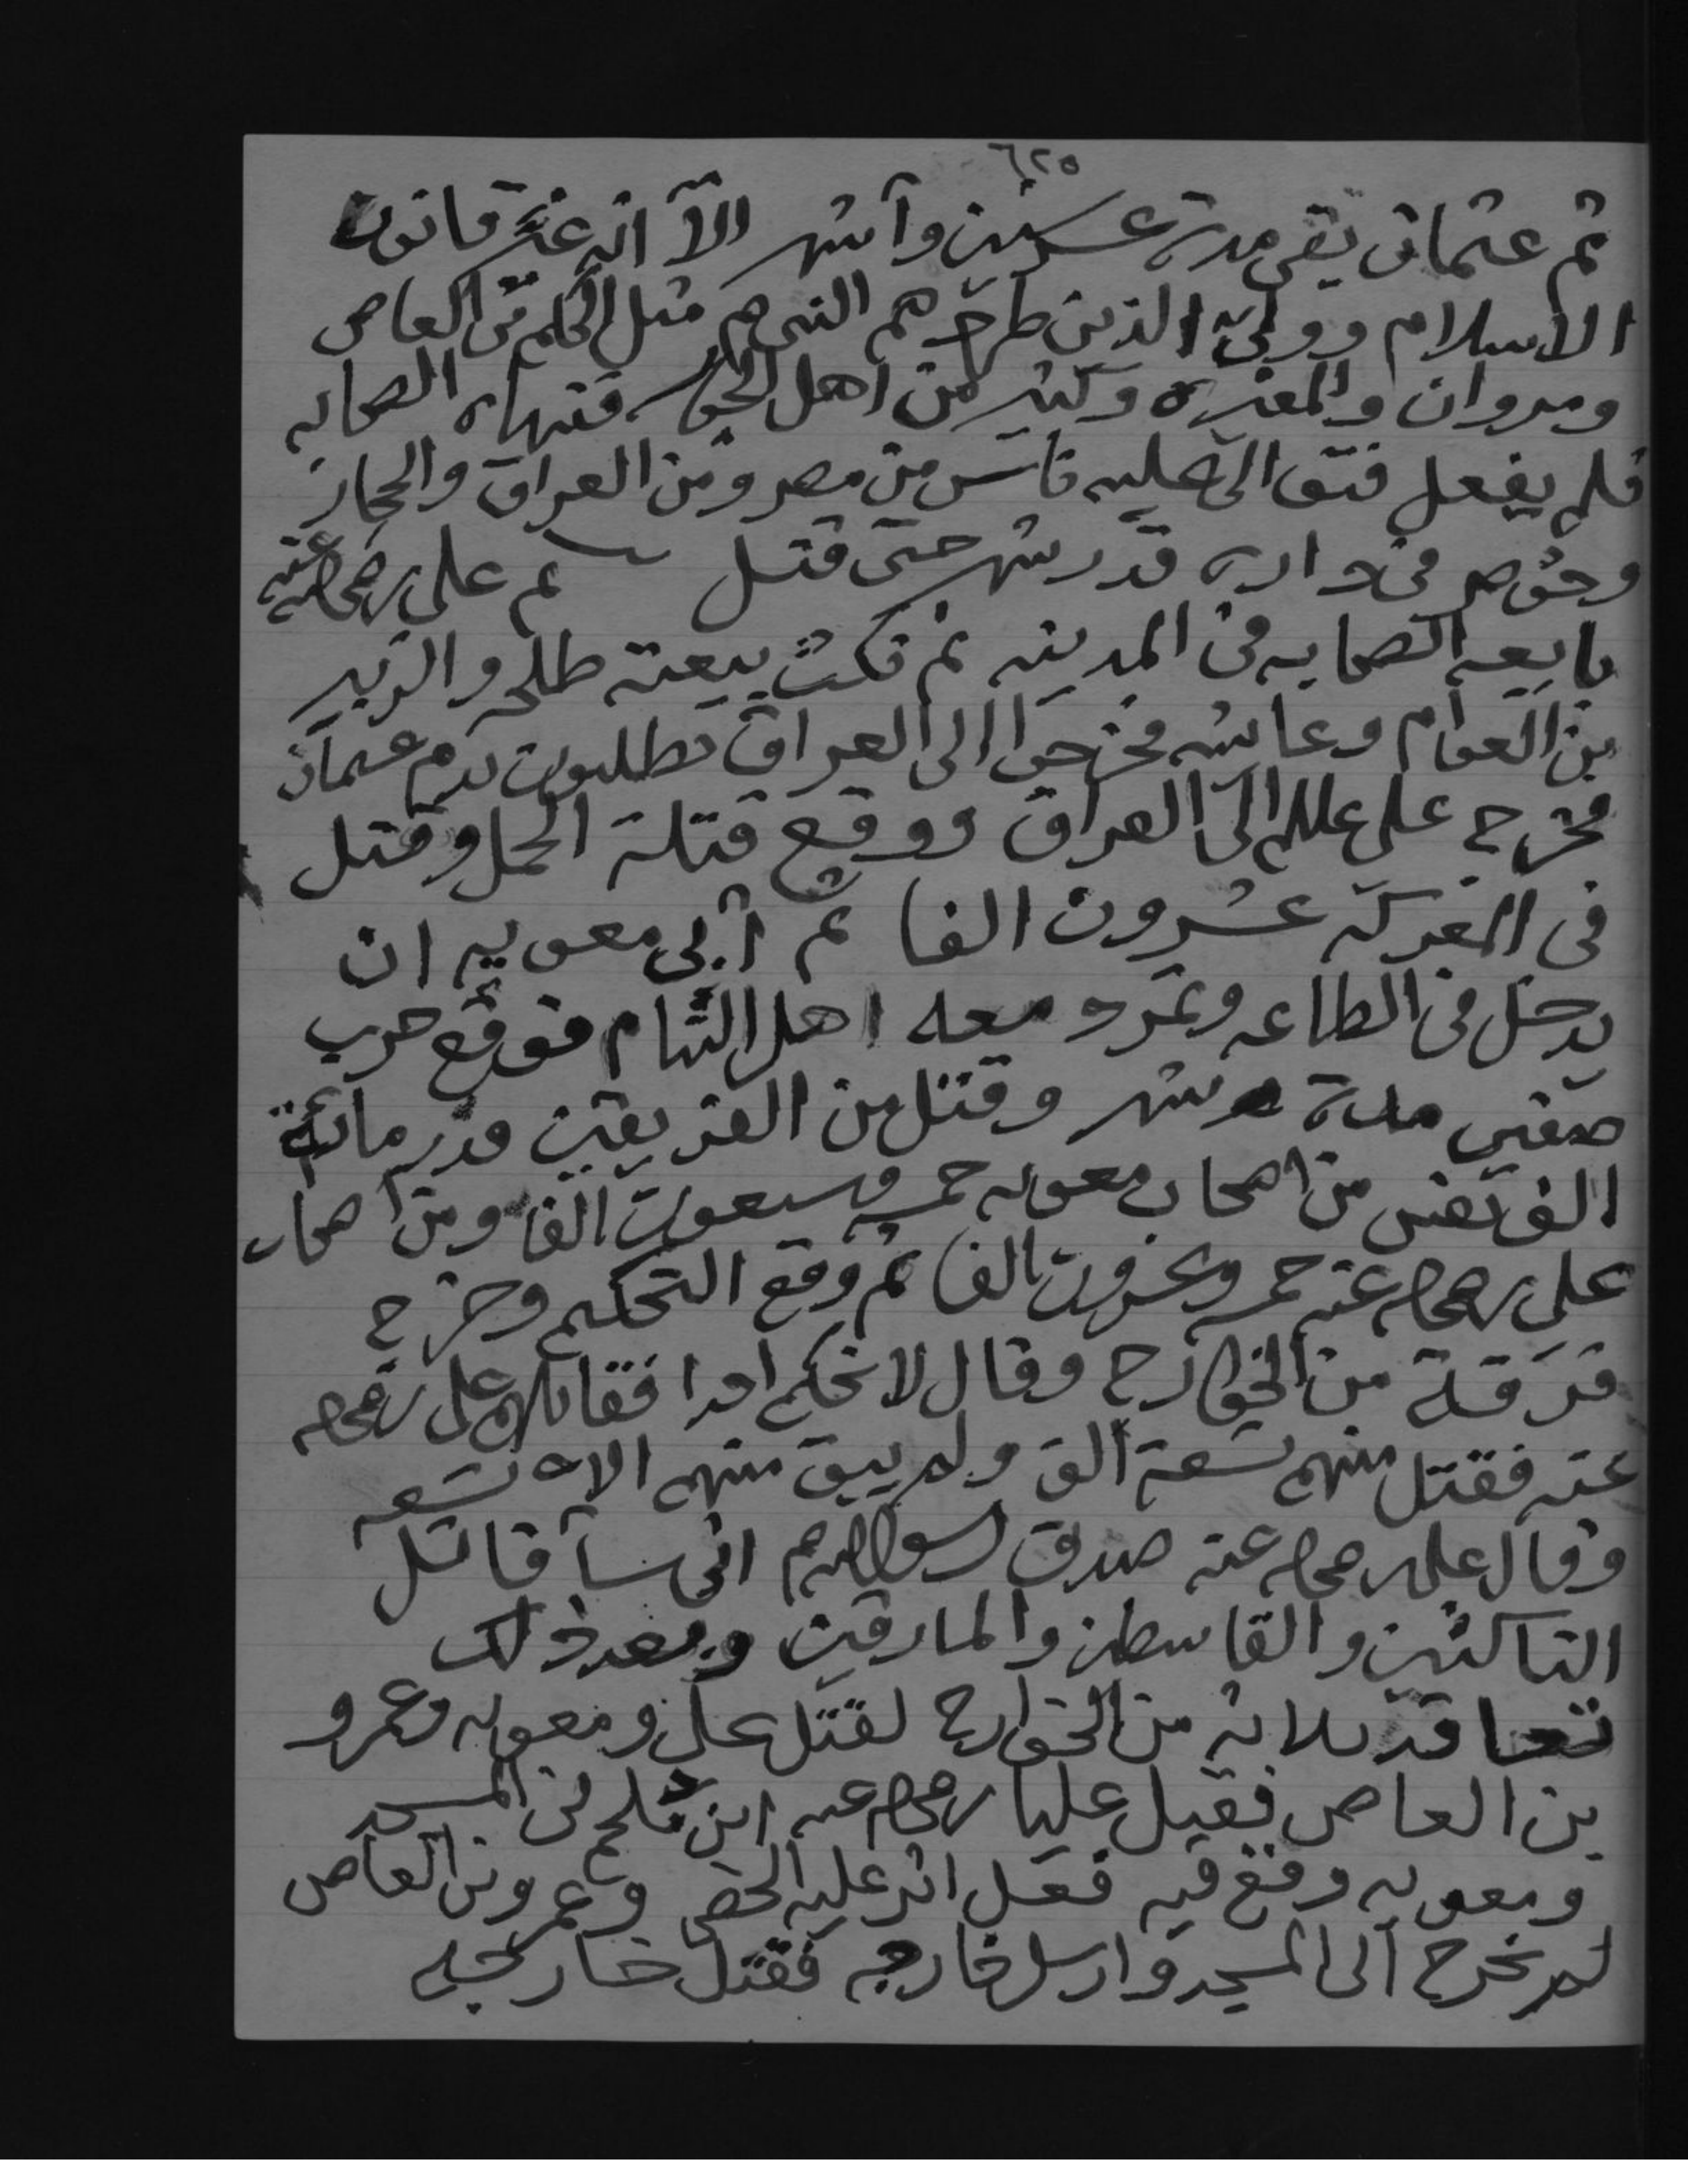 ٦٢٥
ثم عثمان بقى مدة عشرين وأشهر الا انه غير قانون
الاسلام وولى الذين طردهم النبى صم مثل الحكم بن العاص
ومروان والمغيره وكثير من اهل الجور فنهاه الصحابه
فلم يفعل فتوالى عليه ناس من مصر ومن العراق والحجاز
وحوصر فى داره قدر شهر حتى قتل ثم على رضى الله عنه
بايعه الصحابه فى المدينه ثم نكث بيعته طلحه والزبير
بن العوام وعايشه فخرجوا الى العراق يطلبون بدم عثمان
فخرج على عللم الى العراق ووقع قتلة الجمل وقتل
فى المعركه عشرون الفا ثم أبى معويه ان
يدخل فى الطاعه وتمرد معه اهل الشام فوقع حرب
صفين مدة شهر وقتل من الفريقين قدر مائة
الف نفس من اصحاب معويه خمسه وسبعون الفا ومن اصحاب
على رضى الله عنه خمسه وعشرون الفا ثم وقع التحكيم وخرج
فرقة من الخوارج وقال لا نحكم احدا فقاتلهم على رضى الله
عنه فقتل منهم تسعة ألف ولم يبق منهم الا تسعه
وقال على رضى الله عنه صدق رسول الله صم انى سأقاتل
الناكثين والقاسطين والمارقين وبعد ذلك
تعاقد ثلاثه من الخوارج لقتل على ومعويه وعمرو
بن العاص فقتل عليا رضى الله عنه ابن ملجم فى المسجد
ومعويه وقع فيه فعل اثر عليه الخصى وعمرو بن العاص
لم يخرج الى المسجد وارسل خارجه فقتل خارجه